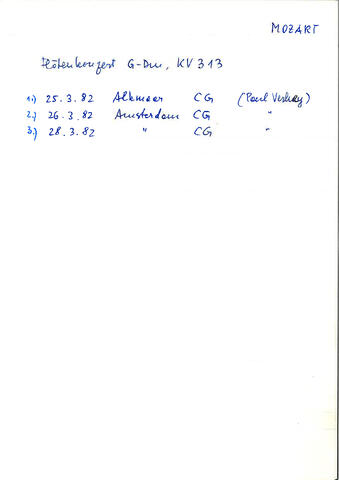 MOZART
Flötenkonzert G-Dur, KV 313
1.) 25.3.82 Alkmaar CG (Paul Verhey)
2.) 26.3.82 Amsterdam CG "
3.) 28.3.82 " CG "